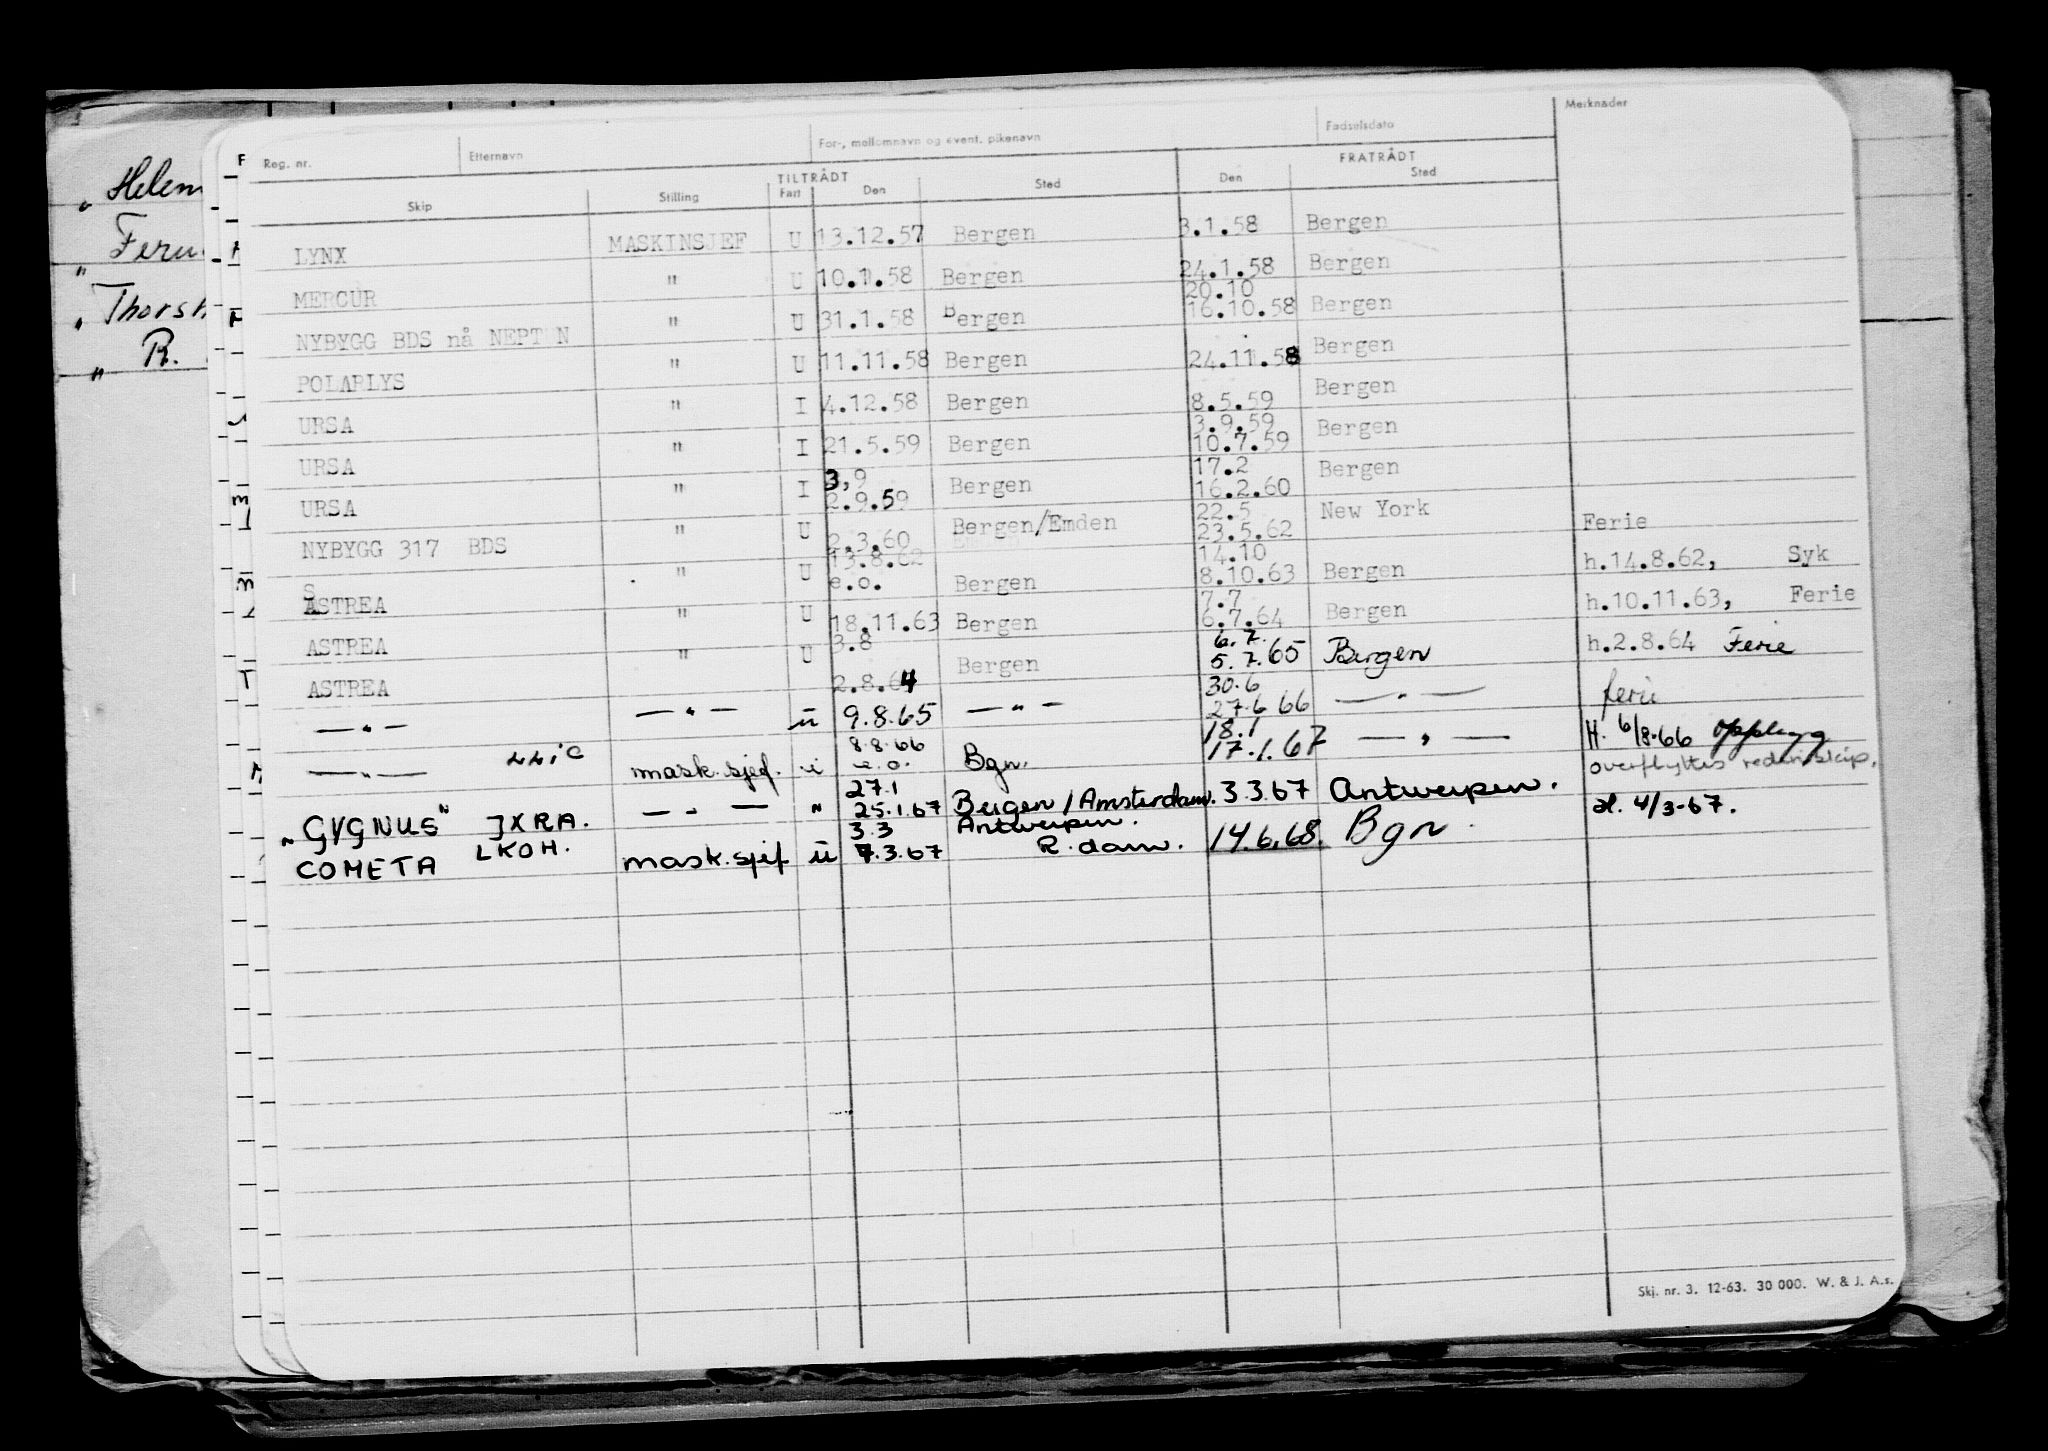 Reg. nr. Etternavn For-, mellomnavn og event. pikenavn Fødselsdato Merknader
TILTRÅDT FRATRÅDT
Skip Stilling Fart Den Sted Den Sted
LYNX MASKINSJEF U 13.12.57 Bergen 3.1.58 Bergen
MERCUR " U 10.1.58 Bergen 24.1.58 Bergen
20.10
NYBYGG BDS nå NEPTUN " U 31.1.58 Bergen 16.10.58 Bergen
POLARLYS " U 11.11.58 Bergen 24.11.58 Bergen
URSA " I 4.12.58 Bergen 8.5.59 Bergen
3.9.59
URSA " I 21.5.59 Bergen 10.7.59 Bergen
3,9 17.2
URSA " I 2.9.59 Bergen 16.2.60 Bergen
22.5
NYBYGG 317 BDS " U 2.3.60 Bergen/Emden 23.5.62 New York Ferie
S 13.8.62 14.10
ASTREA " U e.o. Bergen 8.10.63 Bergen h.14.8.62, Syk
7.7
ASTREA " U 18.11.63 Bergen 6.7.64 Bergen h.10.11.63, Ferie
3.8 6.7.
ASTREA " U 2.8.64 Bergen 5.7.65 Bergen h.2.8.64 Ferie
30.6
— " — — " — ü 9.8.65 — " — 27.6 66 — " — ferie
8.8.66 18.1
— " — LLIC mask.sjef. i e.o. Bgn. 17.1.67 — " — H. 6/8-66 Opplegg
27.1 overflyttes rederiskip.
"GYGNUS" JXRA. — " — " 25.1.67 Bergen / Amsterdam. 3.3.67 Antwerpen. H. 4/3-67.
3.3 Antwerpen.
COMETA LKOH. mask.sjef ü 7.3.67 R.dam. 14.6.68. Bgn.
Skj. nr. 3. 12-63. 30 000. W. & J. A.s.
Helem
Thorsh
R.